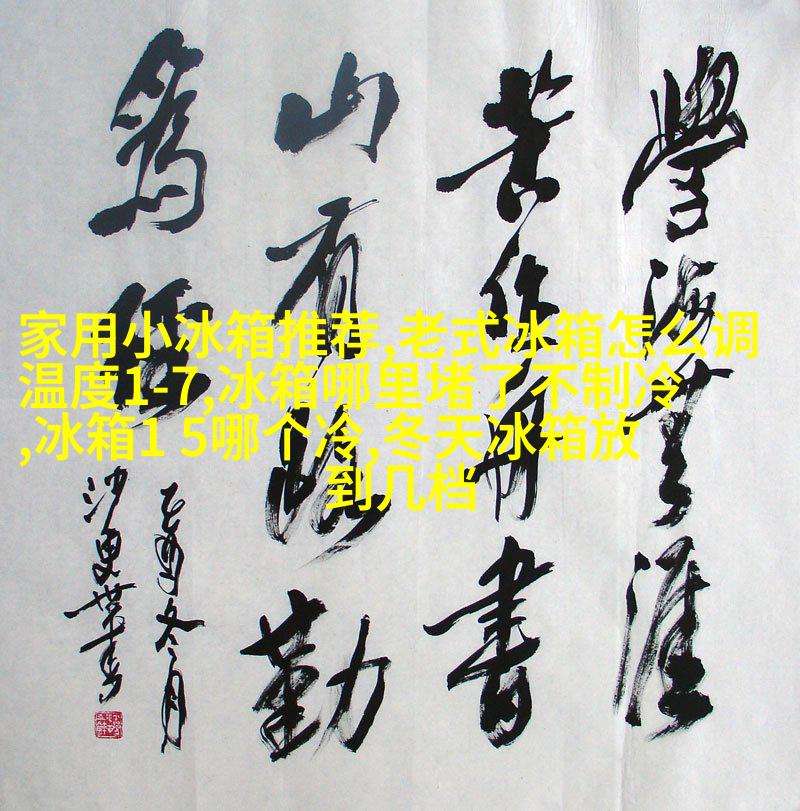 學海無涯
苦作舟書
山有路勤
爲徑
乙酉冬月
家用小冰箱推荐,老式冰箱怎么调
温度1-7,冰箱哪里堵了不制冷
,冰箱1 5哪个冷,冬天冰箱放
到几档